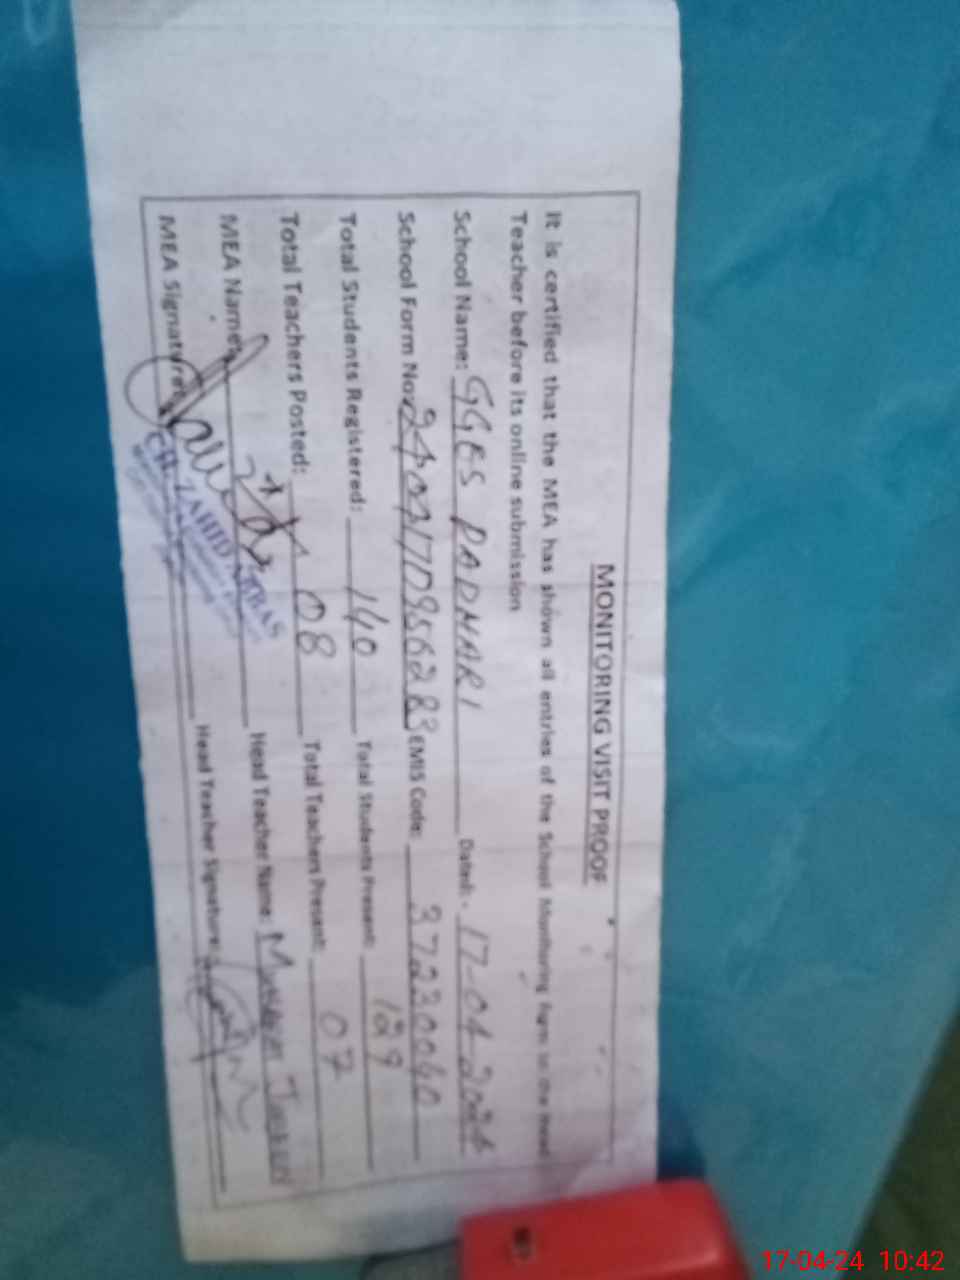 MONITORING VISIT PROOF
It is certified that the MEA has shown all entries of the School Monitoring Form to the Head
Teacher before its online submission
School Name: GGES PADHARI Dated:- 17-04-2024
School Form No: EMIS Code: 37230040
Total Students Registered: 140 Total Students Present: 129
Total Teachers Posted: 08 Total Teachers Present: 07
MEA Name: Head Teacher Name:
MEA Signature: Head Teacher Signature:
CH. ZAHID ABBAS
17-04-24 10:42